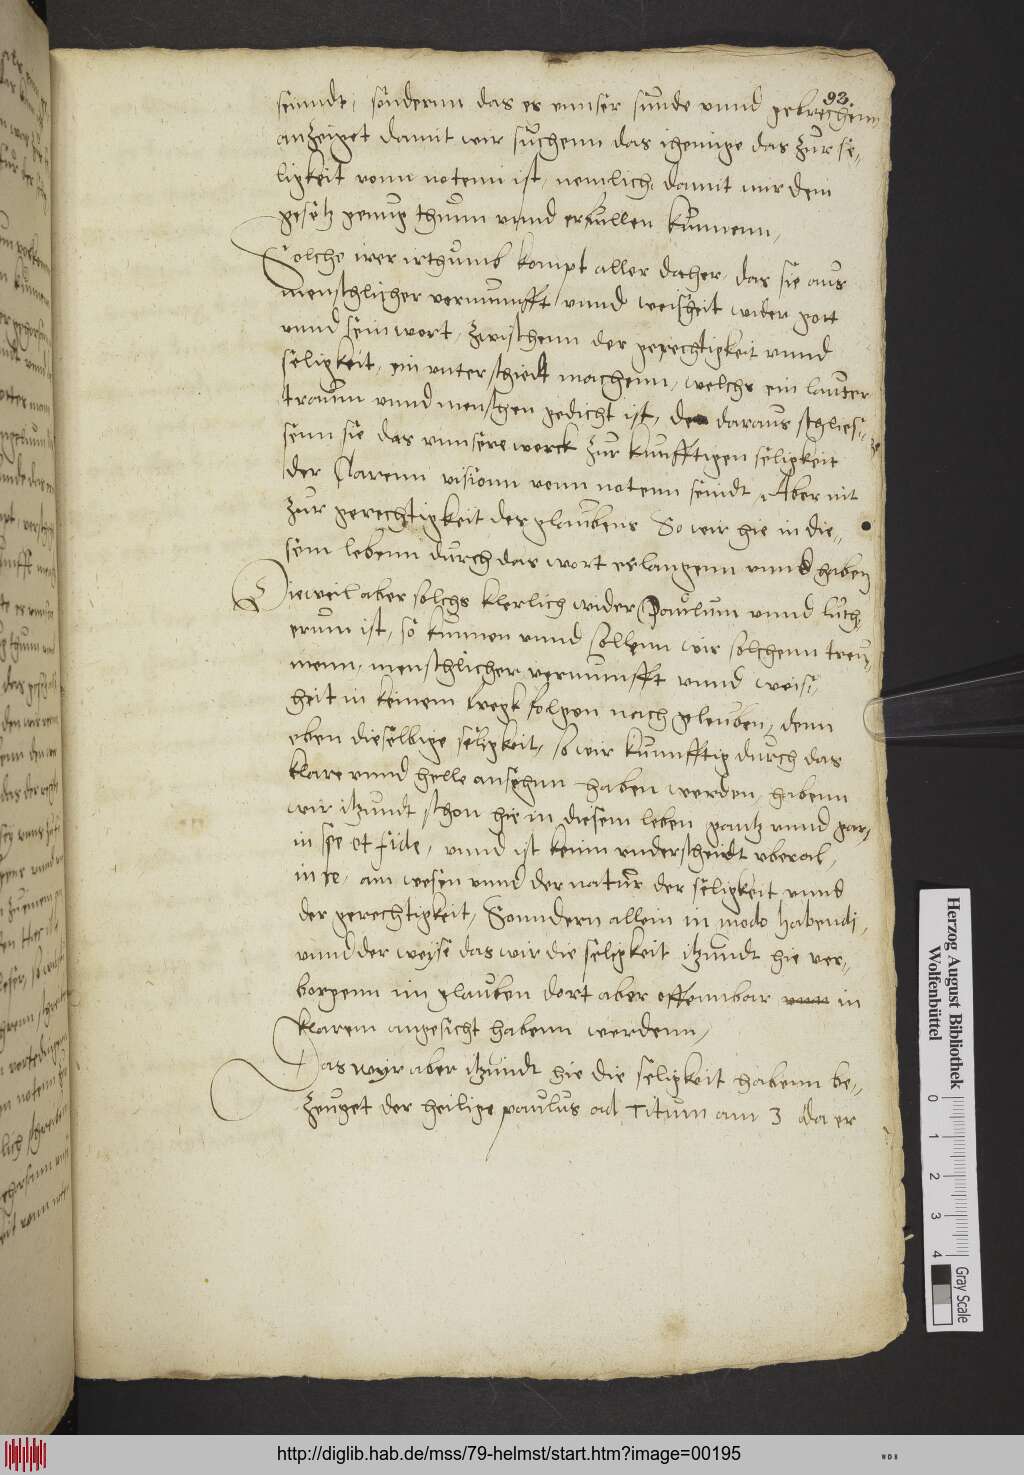 93.
seinndt, sonndernn das es vnnser sunde vnnd gebrechenn
anzeiget damit wir suchenn das ihenige das zur se,,
ligkeit vonn notenn ist, nemlich, damit wir dem
gesetz genug thuenn vnnd erfullen kunnenn,
Solche irer irthumb kompt aller daher, das sie aus
menschlicher vernunfft vnnd weisheit wider gott
vnnd sein wort, zwischenn der gerechtigkeit vnnd
seligkeit, ein vnterschiedt machenn, welchs ein lauter
traum vnnd menschen gedicht ist, daraus schlies,,
senn sie das vnnsere werck zur kunfftigen seligkeit
der Claren visionn vonn notenn seindt, Aber nit
zur gerechtigkeit des glaubens So wir hie in die,,
sem lebenn durch das wort erlangenn vnnd haben
Dieweil aber solchs klerlich wider Paulum vnnd luth,,
erum ist, so kunnen vnnd sollenn wir solchenn treu,,
menn, menschlicher vernunfft vnnd weis,,
heit in keinem wegk folgen noch gleuben, denn
eben dieselbige seligkeit, so wir kunnfftig durch das
klare vnnd helle ansehnn haben werden, habenn
wir itzundt schon hie in diesem leben gantz vnnd gar,
in spe et fide, vnnd ist keinn vnderscheidt vberal,
in re, am wesen vnnd der natur der seligkeit vnnd
der gerechtigkeit, Sonndern allein in modo habendi,
vnnd der weyse das wir die seligkeit itzundt hie ver,,
borgenn im glauben dort aber offennbar vnn in
klarem angesicht habenn werdenn,
Das wyr aber itzundt hie die seligkeit habenn be,,
zeuget der heilige paulus ad Titum am 3 da er
Herzog August Bibliothek
Wolfenbüttel
0 1 2 3 4
Gray Scale
http://diglib.hab.de/mss/79-helmst/start.htm?image=00195